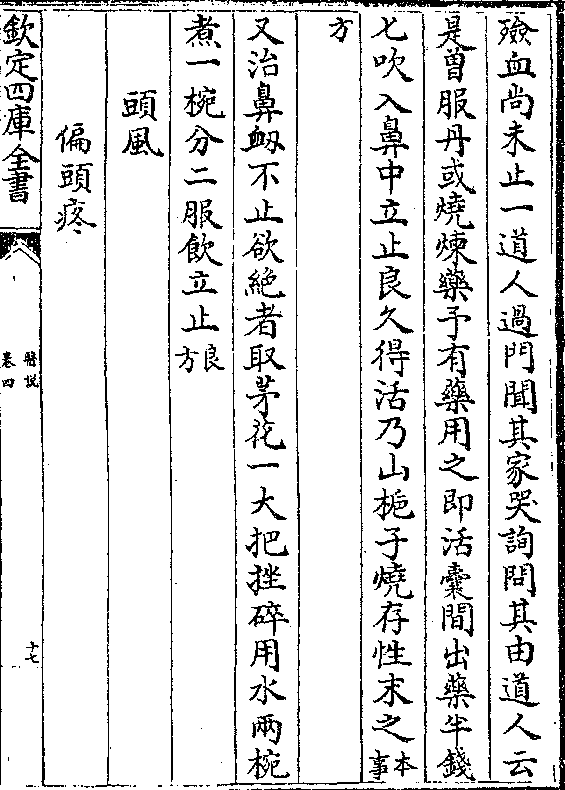 殮血尚未止一道人過門聞其家哭詢問其由道人云
是曽服丹或燒煉藥予有藥用之即活囊間出藥半錢
匕吹入鼻中立止良久得活乃山梔子燒存性末之本事
方
又治鼻衂不止欲絶者取茅花一大把挫碎用水兩椀
煮一椀分二服飲立止良方
頭風
偏頭疼
欽定四庫全書
醫説
卷四
十七